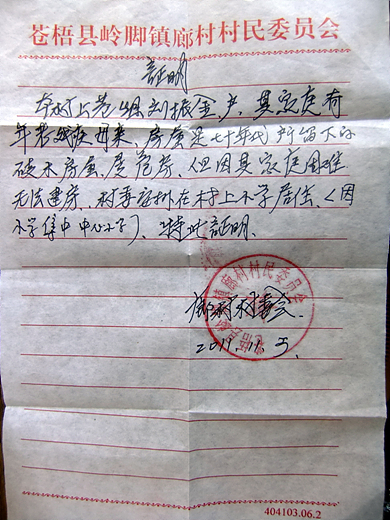 苍梧县岭脚镇廊村村民委员会
证明
本村上卷组刘振金户,其家庭有
年老残疾母亲,房屋是七十年代所留下的
破木房屋,是危房,但因其家庭困难
无法建房,村委安排在村上小学居住,(因
小学集中中心小学)、特此证明.
廊村村委会.
2011.11.3
404103.06.2